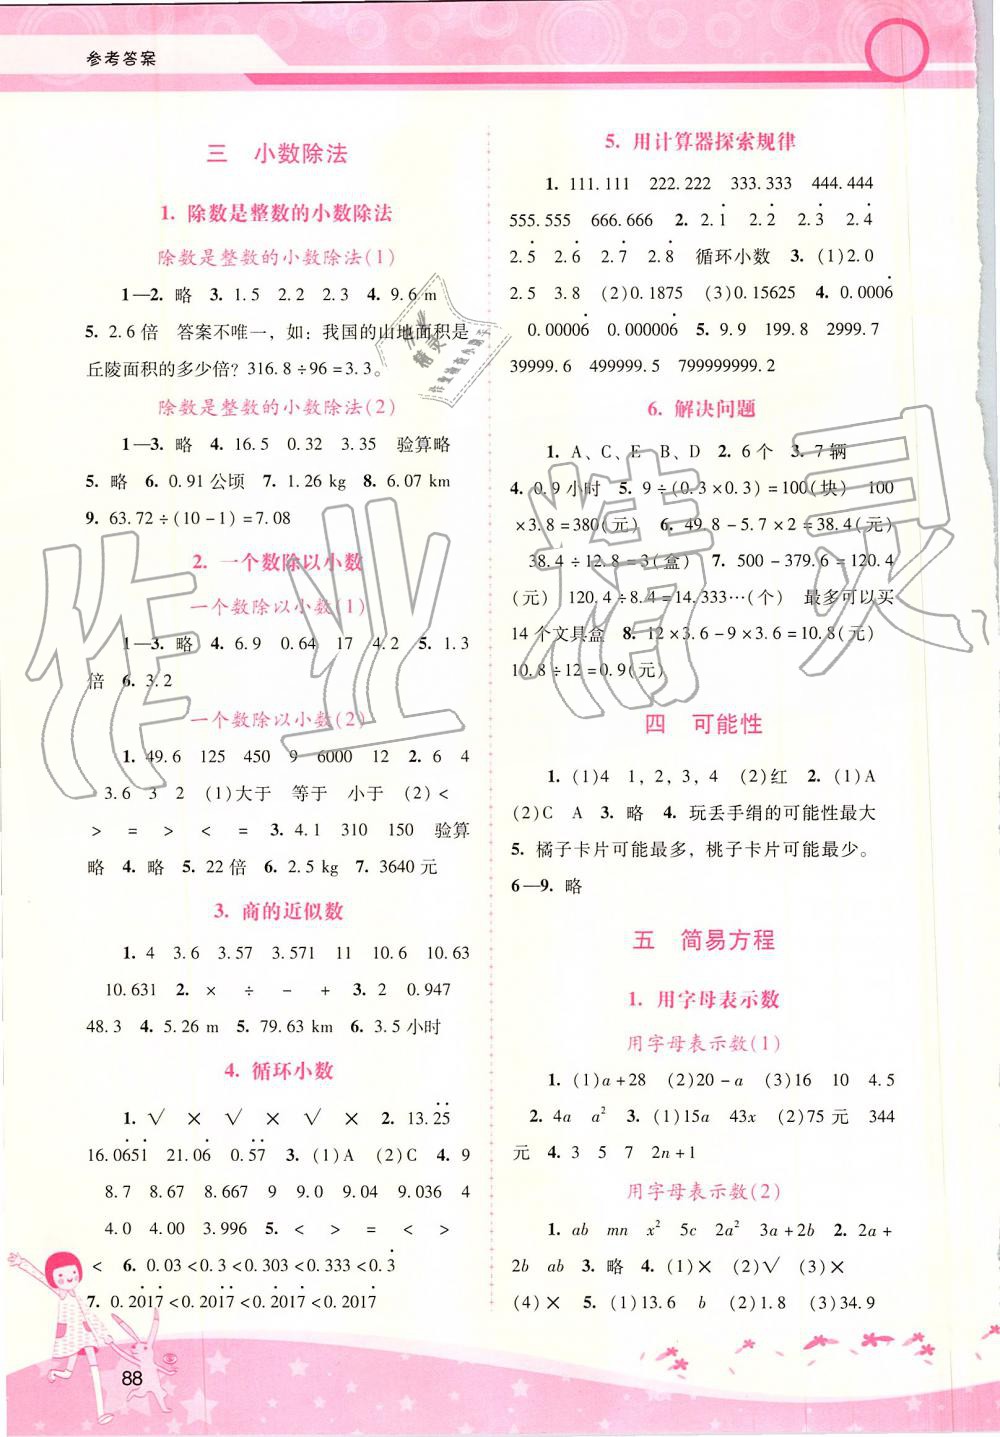 参考答案
三 小数除法
1. 除数是整数的小数除法
除数是整数的小数除法(1)
1—2. 略 3. 1.5 2.2 2.3 4. 9.6 m
5. 2.6倍 答案不唯一，如：我国的山地面积是
丘陵面积的多少倍？316.8÷96=3.3。
除数是整数的小数除法(2)
1—3. 略 4. 16.5 0.32 3.35 验算略
5. 略 6. 0.91公顷 7. 1.26 kg 8. 6.07 km
9. 63.72÷(10-1)=7.08
2. 一个数除以小数
一个数除以小数(1)
1—3. 略 4. 6.9 0.64 17 4.2 5. 1.3
倍 6. 3.2
一个数除以小数(2)
1. 49.6 125 450 9 6000 12 2. 6 4
3.6 3 2 (1)大于 等于 小于 (2)<
> = > < = 3. 4.1 310 150 验算
略 4. 略 5. 22倍 6. 2.5 kg 7. 3640元
3. 商的近似数
1. 4 3.6 3.57 3.571 11 10.6 10.63
10.631 2. × ÷ - + 3. 2 0.947
48.3 4. 5.26 m 5. 79.63 km 6. 3.5小时
4. 循环小数
1. √ × √ × √ × 2. 13.2̇5̇
16.06̇51̇ 21.06̇ 0.5̇7̇ 3. (1)A (2)C 4. 9
8.7 8.67 8.667 9 9.0 9.04 9.036 4
4.0 4.00 3.996 5. < > = < >
< 6. 0.03<0.3<0.303<0.333<0.3̇
7. 0.2̇017̇<0.201̇7̇<0.20̇17̇<0.2017̇
5. 用计算器探索规律
1. 111.111 222.222 333.333 444.444
555.555 666.666 2. 2.1̇ 2.2̇ 2.3̇ 2.4̇
2.5̇ 2.6̇ 2.7̇ 2.8̇ 循环小数 3. (1)2.0
2.5 3.8 (2)0.1875 (3)0.15625 4. 0.0006̇
0.00006̇ 0.000006̇ 5. 9.9 199.8 2999.7
39999.6 499999.5 799999999.2
6. 解决问题
1. A、C、E B、D 2. 6个 3. 7辆
4. 0.9小时 5. 9÷(0.3×0.3)=100(块) 100
×3.8=380(元) 6. 49.8-5.7×2=38.4(元)
38.4÷12.8=3(盒) 7. 500-379.6=120.4
(元) 120.4÷8.4=14.333…(个) 最多可以买
14个文具盒 8. 12×3.6-9×3.6=10.8(元)
10.8÷12=0.9(元)
四 可能性
1. (1)4 1，2，3，4 (2)红 2. (1)A
(2)C A 3. 略 4. 玩丢手绢的可能性最大
5. 橘子卡片可能最多，桃子卡片可能最少。
6—9. 略
五 简易方程
1. 用字母表示数
用字母表示数(1)
1. (1)a+28 (2)20-a (3)16 10 4.5
2. 4a a² 3. (1)15a 43x (2)75元 344
元 4. 3 5 7 2n+1
用字母表示数(2)
1. ab mn x² 5c 2a² 3a+2b 2. 2a+
2b ab 3. 略 4. (1)× (2)√ (3)×
(4)× 5. (1)13.6 b (2)1.8 (3)34.9
88
作业精灵